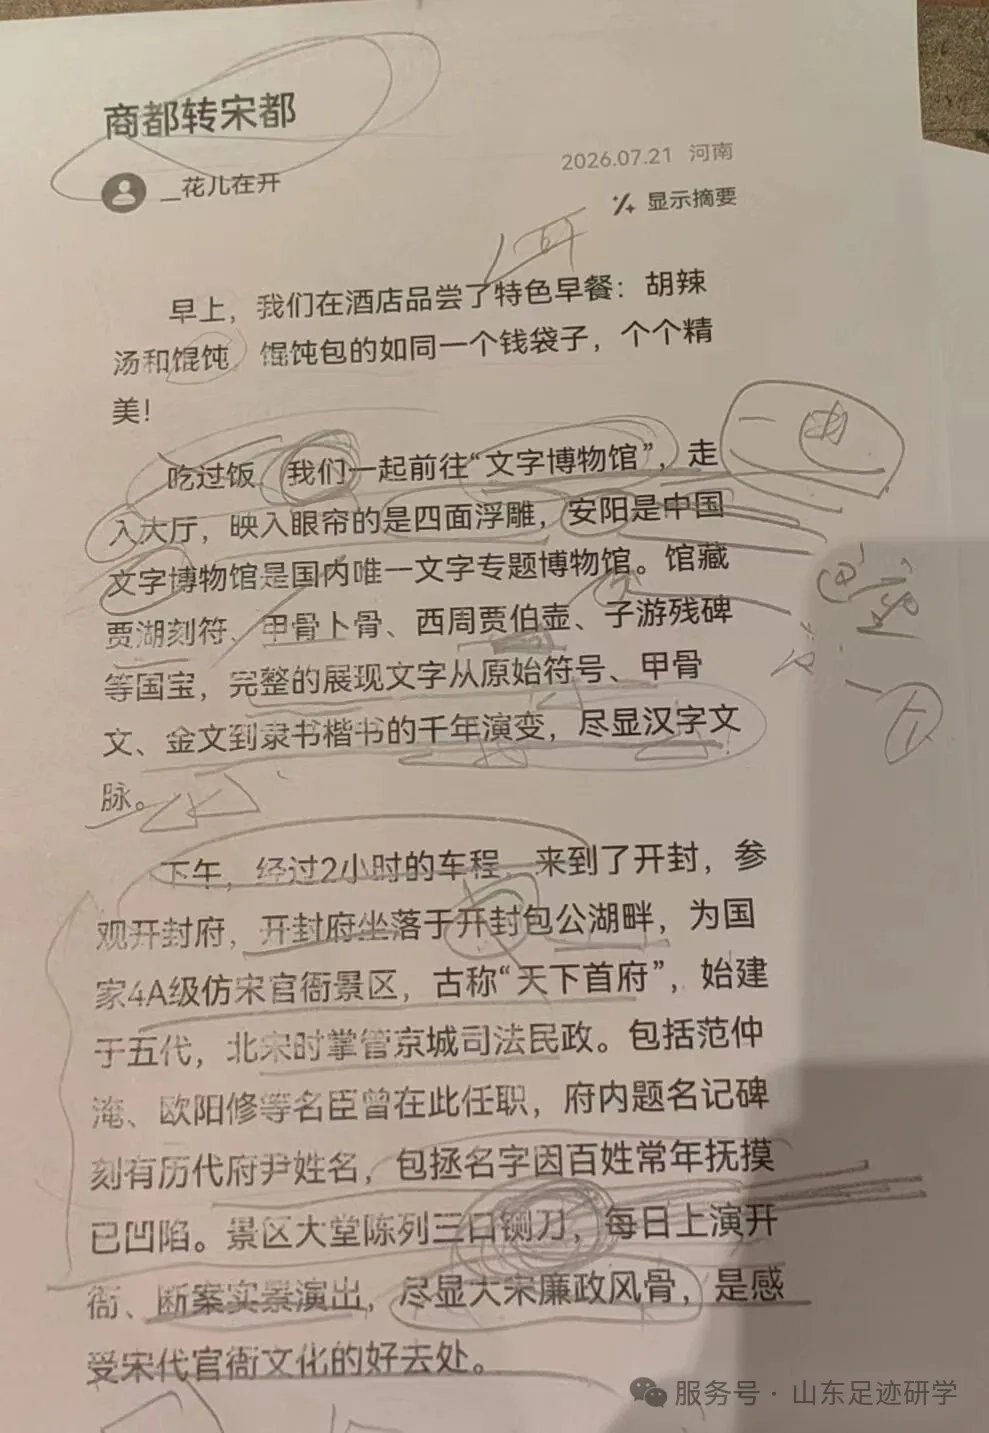 商都转宋都
__花儿在开
2026.07.21 河南
显示摘要
早上，我们在酒店品尝了特色早餐：胡辣
汤和馄饨，馄饨包的如同一个钱袋子，个个精
美！
吃过饭，我们一起前往“文字博物馆”，走
入大厅，映入眼帘的是四面浮雕，安阳是中国
文字博物馆是国内唯一文字专题博物馆。馆藏
贾湖刻符、甲骨卜骨、西周贾伯壶、子游残碑
等国宝，完整的展现文字从原始符号、甲骨
文、金文到隶书楷书的千年演变，尽显汉字文
脉。
下午，经过2小时的车程，来到了开封，参
观开封府，开封府坐落于开封包公湖畔，为国
家4A级仿宋官衙景区，古称“天下首府”，始建
于五代，北宋时掌管京城司法民政。包括范仲
淹、欧阳修等名臣曾在此任职，府内题名记碑
刻有历代府尹姓名，包拯名字因百姓常年抚摸
已凹陷。景区大堂陈列三口铡刀，每日上演开
衙、断案实景演出，尽显大宋廉政风骨，是感
受宋代官衙文化的好去处。
服务号 · 山东足迹研学